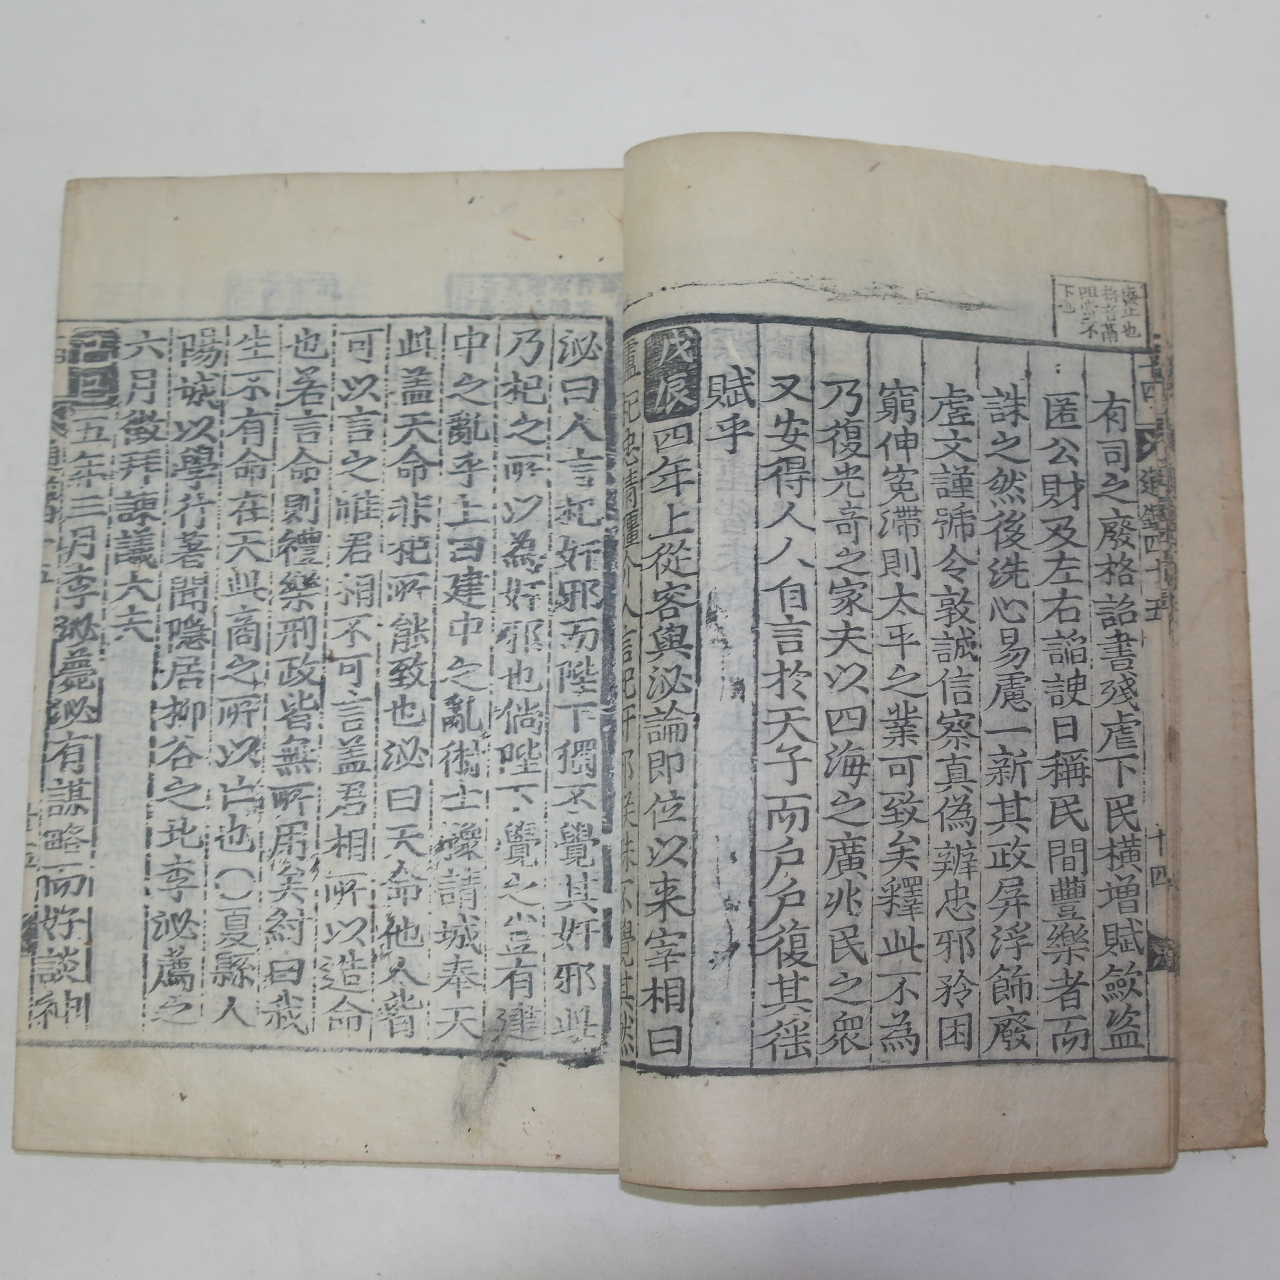 廢止也
格者萬
沮當不
下也
有司之廢格詔書殘虐下民橫增賦斂盜
匿公財及左右諂諛日稱民間豐樂者而
誅之然後洗心易慮一新其政屏浮飾廢
虛文謹號令敦誠信察真偽辨忠邪矜困
窮伸冤滯則太平之業可致矣釋此不為
乃復光奇之家夫以四海之廣兆民之衆
又安得人人自言於天子而戶戶復其徭
賦乎
戊辰四年上從容與泌論即位以来宰相曰
盧杞忠清彊介人言杞奸邪朕殊不覺其然
泌曰人言杞奸邪而陛下獨不覺其奸邪此
乃杞之所以為奸邪也倘陛下覺之豈有建
中之亂乎上曰建中之亂術士豫請城奉天
此盖天命非杞所能致也泌曰天命他人皆
可以言之惟君相不可言盖君相所以造命
也若言命則禮樂刑政皆無所用矣紂曰我
生不有命在天此商之所以亡也〇夏縣人
陽城以學行著聞隱居柳谷之北李泌薦之
六月徵拜諫議大夫
己巳五年三月李泌薨泌有謀略而好談神